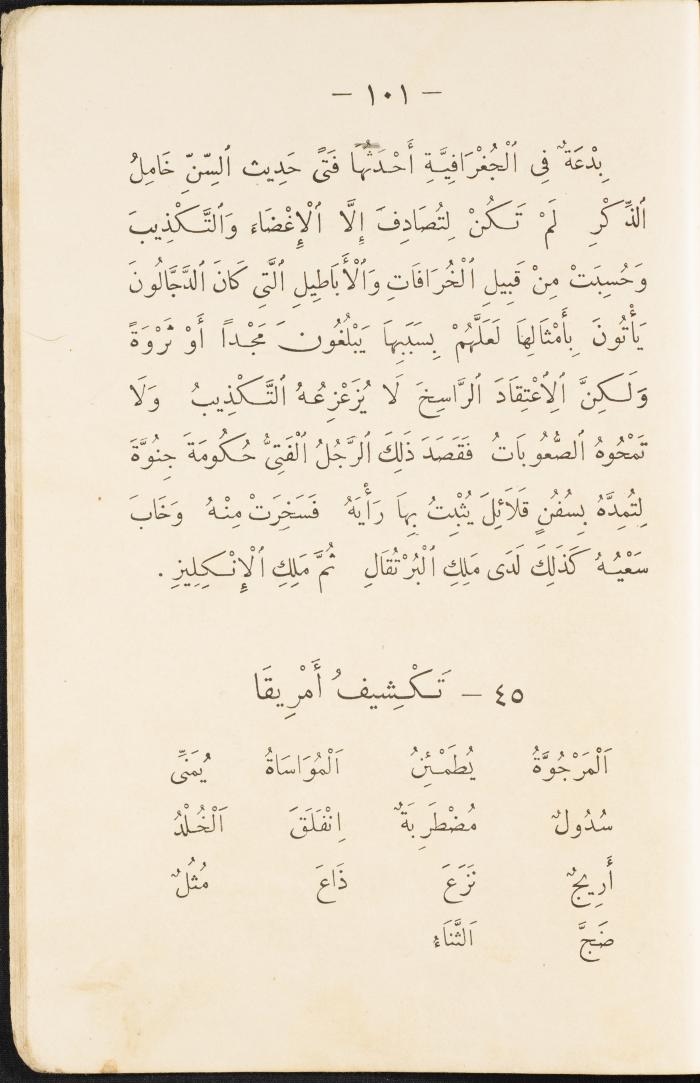 — ١٠١ —
بِدْعَةٌ فِي ٱلْجُغْرَافِيَّةِ أَحْدَثَهَا فَتًى حَدِيث ٱلسِّنِّ خَامِلُ
ٱلذِّكْرِ لَمْ تَكُنْ لِتُصَادِفَ إِلَّا ٱلْإِغْضَاءَ وَٱلتَّكْذِيبَ
وَحُسِبَتْ مِنْ قَبِيلِ ٱلْخُرَافَاتِ وَٱلْأَبَاطِيلِ ٱلَّتِي كَانَ ٱلدَّجَّالُونَ
يَأْتُونَ بِأَمْثَالِهَا لَعَلَّهُمْ بِسَبَبِهَا يَبْلُغُونَ مَجْداً أَوْ ثَرْوَةً
وَلَكِنَّ ٱلِٱعْتِقَادَ ٱلرَّاسِخَ لَا يُزَعْزِعُهُ ٱلتَّكْذِيبُ وَلَا
تَمْحُوهُ ٱلصُّعُوبَاتُ فَقَصَدَ ذَلِكَ ٱلرَّجُلُ ٱلْفَتِيُّ حُكُومَةَ جِنُوَّةَ
لِتُمِدَّهُ بِسُفُنٍ قَلَائِلَ يُثْبِتُ بِهَا رَأْيَهُ فَسَخِرَتْ مِنْهُ وَخَابَ
سَعْيُهُ كَذَلِكَ لَدَى مَلِكِ ٱلْبُرْتُقَالِ ثُمَّ مَلِكِ ٱلْإِنْكِلِيزِ .
٤٥ — تَكْشِيفُ أَمْرِيقَا
اَلْمَرْجُوَّةُ يُطَمْئِنُ اَلْمُوَاسَاةُ يُمَنِّي
سُدُولٌ مُضْطَرِبَةٌ اِنْفَلَقَ اَلْخُلْدُ
أَرِيجٌ نَزَعَ ذَاعَ مُثُلٌ
ضَجَّ اَلثَّنَاءُ